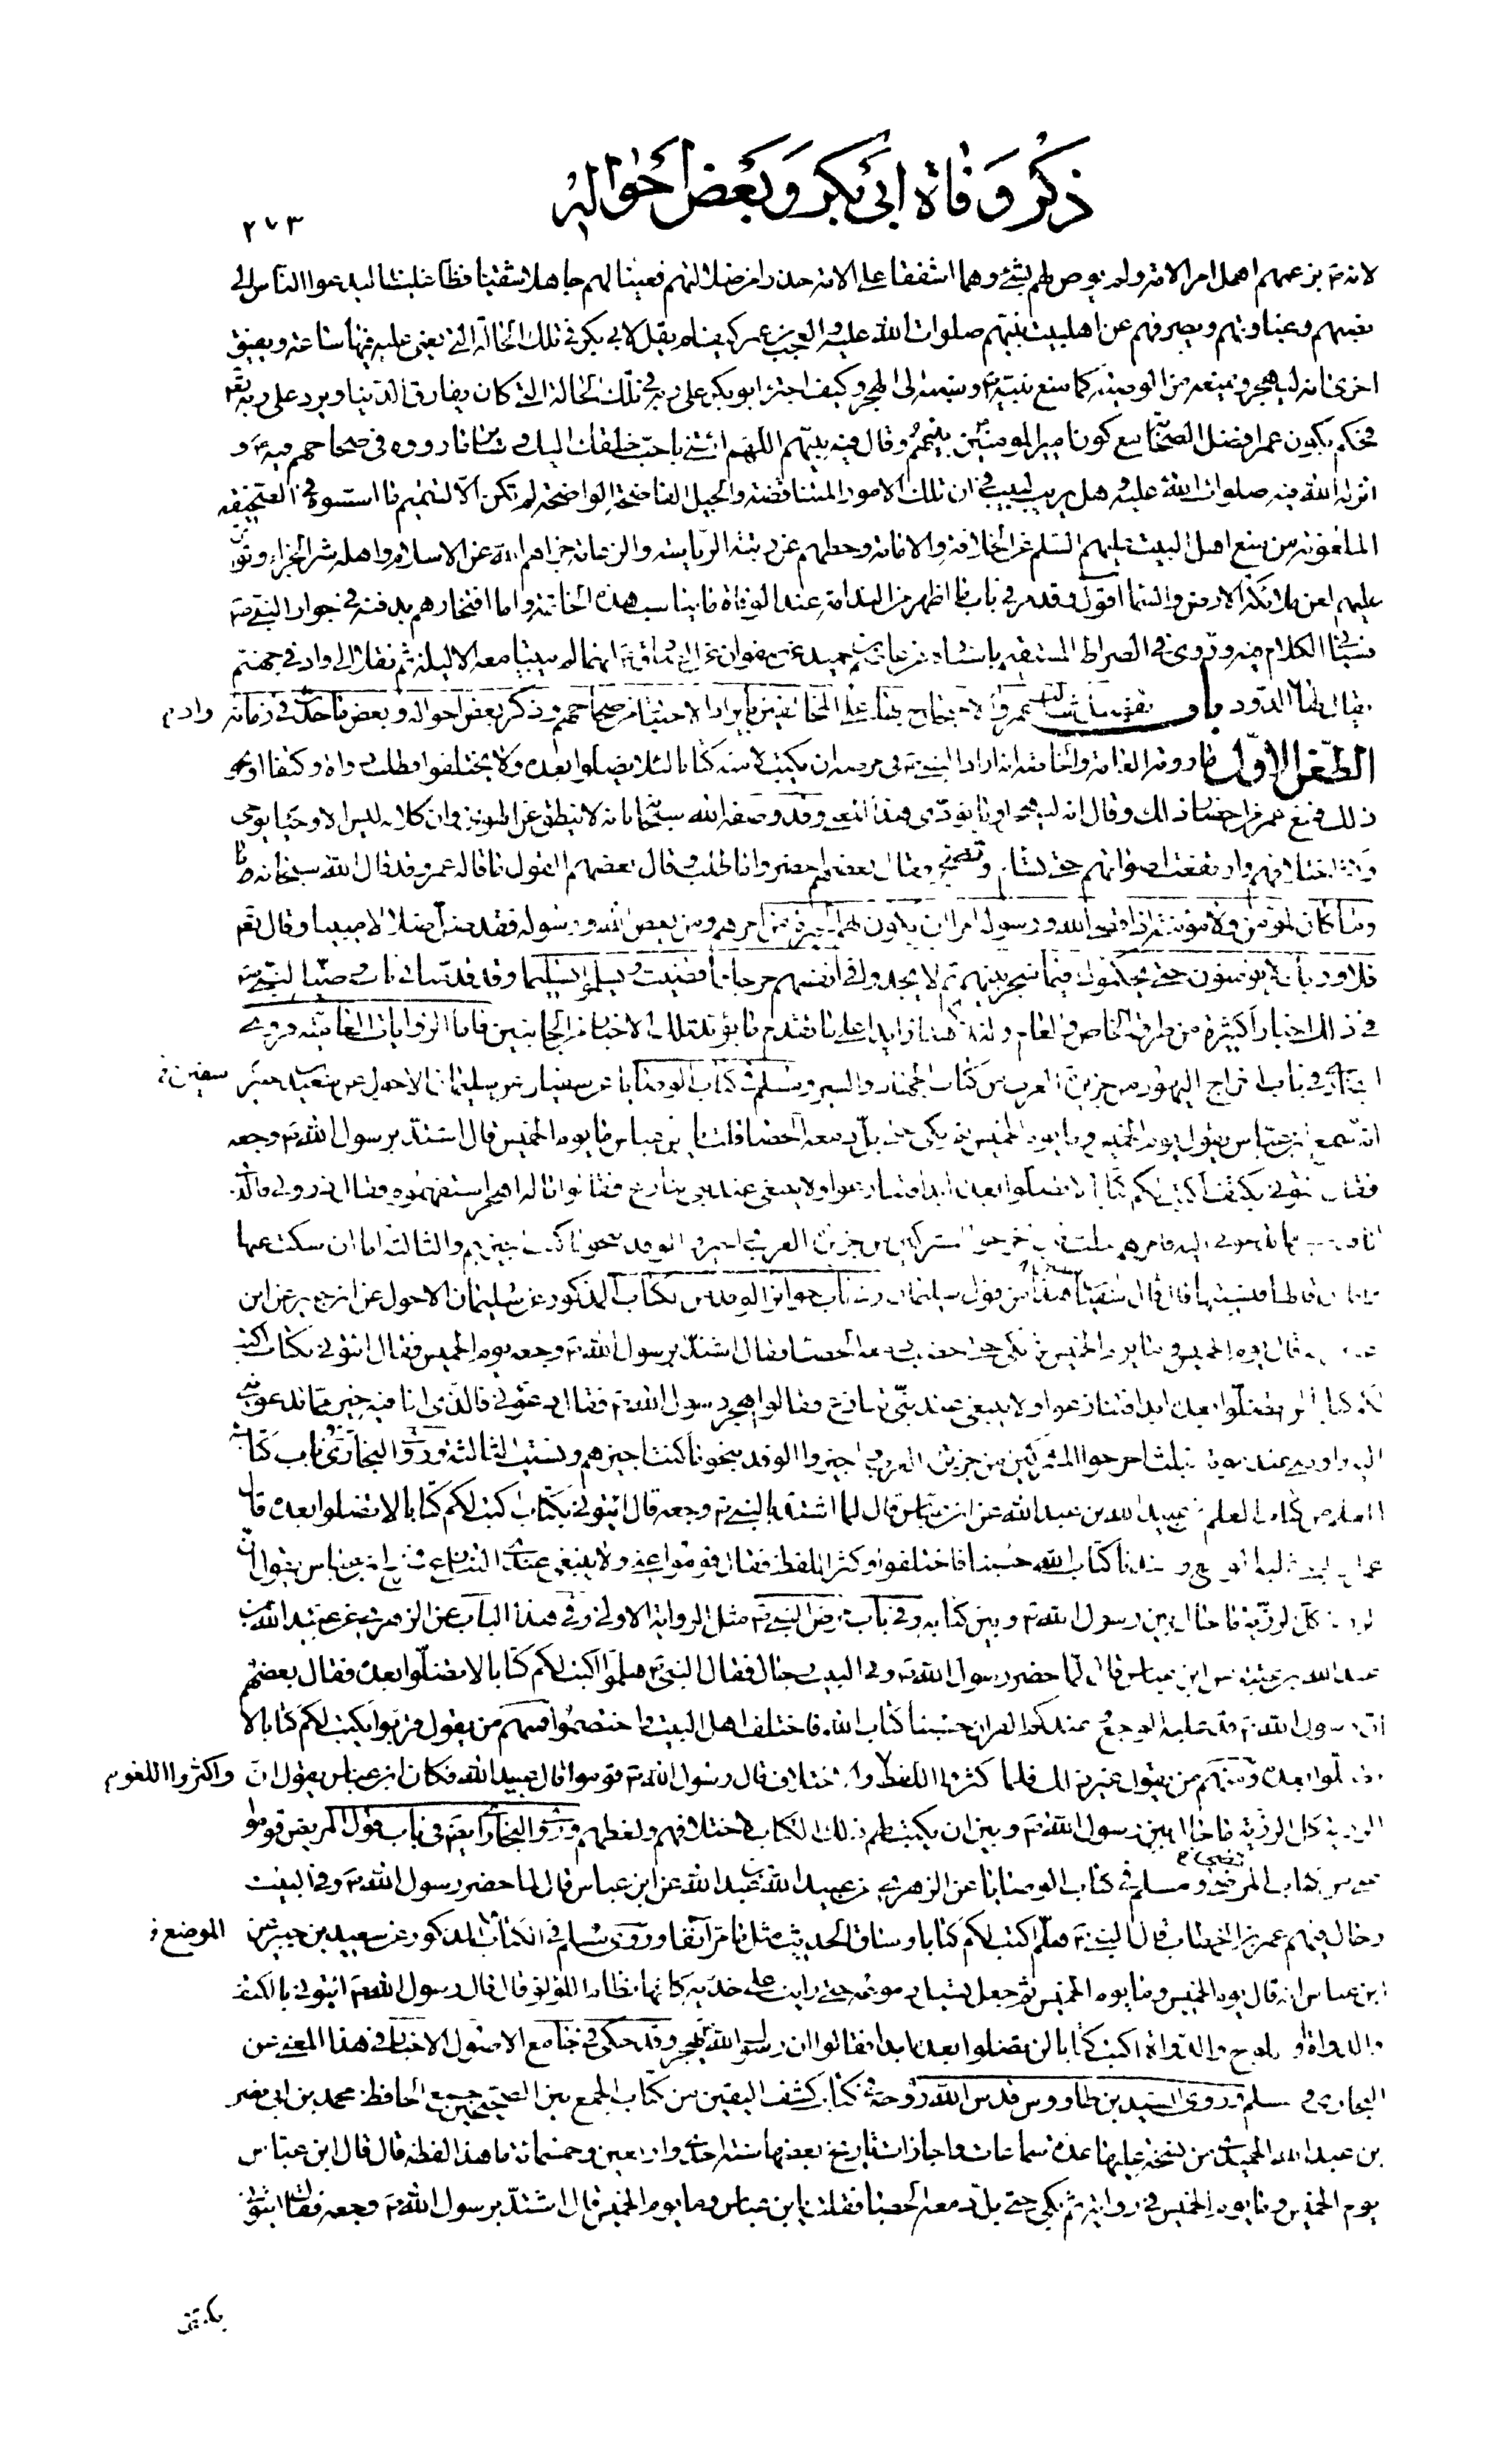 ذكر وفاة ابي بكر وبعض احواله
٢٧٣
لانه ص بزعمهم اهمل امر الامة ولم يوص لهم بشئ وهما اشفقا على الامة حذرا من ضلالتهم فعينا لهم جاهلا شقيا فظا غليظا ليدعوا الناس الى
نصبهم وغباوتهم ويصرفهم عن اهل بيت نبيهم صلوات الله عليه والعجب من عمر كيف لم يقل لابي بكر في تلك الحالة التي يغمى عليه فيها ساعة ويفيق
اخرى انه ليهجر ويمنعه من الوصية كما منع نبيه ص ونسبه الى الهجر وكيف اجترا ابو بكر على ربه في تلك الحالة التي كان يفارق الدنيا ويرد على ربه تعالى
فحكم بكون عمر افضل الصحابة مع كون امير المؤمنين بينهم وقال فيه نبيهم اللهم ائتني باحب خلقك اليك وسائر ما رووه في صحاحهم فيه ع و
انزله الله فيه صلوات الله عليه وهل يريب لبيب في ان تلك الامور المتناقضة والحيل الفاضحة الواضحة لم تكن الا لتتميم ما اسسوه في الصحيفة
الملعونة من منع اهل البيت عليهم السلم عن الخلافة والامامة وحطهم عن رتبة الرياسة والزعامة جزاهم الله عن الاسلام واهله شر الجزاء وتواتر
عليهم لعن ملائكة الارض والسماء اقول وقد مر في باب ما اظهر من الندامة عند الوفاة ما يناسب هذه الخاتمة واما افتخارهم بدفنه في جوار النبي ص
فسياتي الكلام فيه وروى في الصراط المستقيم باسناده عن عاصم بن حميد عن صفوان عن الصادق ع انهما لم يبيتا معه الا ليلة ثم نقلا الى واد في جهنم
يقال لها الدود باب تفصيل مثالب عمر والاحتجاج بها على المخالفين بايراد الاخبار من صحاحهم وذكر بعض احواله وبعض ما حدث في زمانه
الطعن الاول ما روته العامة والخاصة انه اراد النبي ص في مرضه ان يكتب لامته كتابا لئلا يضلوا بعده ولا يختلفوا فطلب دواة وكتفا او نحو
ذلك فمنع عمر من احضار ذلك وقال انه ليهجر او ما يؤدي هذا المعنى وقد وصفه الله سبحانه بانه لا ينطق عن الهوى وان كلامه ليس الا وحيا يوحى
وكثر اختلافهم وارتفعت اصواتهم حتى تسأم وتضجر فقال بعضهم احضروا ما طلب وقال بعضهم القول ما قاله عمر وقد قال الله سبحانه
وما كان لمؤمن ولا مؤمنة اذا قضى الله ورسوله امرا ان يكون لهم الخيرة من امرهم ومن يعص الله ورسوله فقد ضل ضلالا مبينا وقال تعالى
فلا وربك لا يؤمنون حتى يحكموك فيما شجر بينهم ثم لا يجدوا في انفسهم حرجا مما قضيت ويسلموا تسليما وقد قدمنا في باب وصية النبي ص
في ذلك اخبارا كثيرة من طرق الخاص والعام ولنذكر هنا زايدا على ما تقدم ما يؤيد تلك الاخبار من الجانبين فاما الروايات العامية فروى
البخاري في باب اخراج اليهود من جزيرة العرب من كتاب الجهاد والسير ومسلم في كتاب الوصايا عن سفيان عن سليمان الاحول عن سعيد بن جبير
انه سمع ابن عباس يقول يوم الخميس وما يوم الخميس ثم بكى حتى بل دمعه الحصا قلت يا بن عباس ما يوم الخميس قال اشتد برسول الله ص وجعه
فقال ائتوني بكتف اكتب لكم كتابا لا تضلوا بعده ابدا فتنازعوا ولا ينبغي عند نبي تنازع فقالوا ما له اهجر استفهموه فقال ذروني فالذي
انا فيه خير مما تدعوني اليه فامرهم بثلث قال اخرجوا المشركين من جزيرة العرب واجيزوا الوفد بنحو ما كنت اجيزهم والثالثة اما ان سكت عنها
واما ان قالها فنسيتها قال سفيان هذا من قول سليمان وفي باب جوايز الوفد من الكتاب المذكور عن سليمان الاحول عن ابن جبير عن ابن
عباس انه قال يوم الخميس وما يوم الخميس ثم بكى حتى خضب دمعه الحصا فقال اشتد برسول الله ص وجعه يوم الخميس فقال ائتوني بكتاب اكتب
لكم كتابا لن تضلوا بعده ابدا فتنازعوا ولا ينبغي عند نبي تنازع فقالوا هجر رسول الله ص فقال دعوني فالذي انا فيه خير مما تدعوني
اليه واوصى عند موته بثلث اخرجوا المشركين من جزيرة العرب واجيزوا الوفد بنحو ما كنت اجيزهم ونسيت الثالثة وروى البخاري في باب كتابة
العلم من كتاب العلم عن عبيد الله بن عبد الله عن ابن عباس قال لما اشتد بالنبي ص وجعه قال ائتوني بكتاب اكتب لكم كتابا لا تضلوا بعده قال
عمر ان النبي غلبه الوجع وعندنا كتاب الله حسبنا فاختلفوا وكثر اللغط فقال قوموا عني ولا ينبغي عندي التنازع فخرج ابن عباس يقول ان
الرزية كل الرزية ما حال بين رسول الله ص وبين كتابه وفي باب مرض النبي ص مثل الرواية الاولى وفي هذا الباب عن الزهري عن عبيد الله بن
عبد الله بن عتبة عن ابن عباس قال لما حضر رسول الله ص وفي البيت رجال فقال النبي ص هلموا اكتب لكم كتابا لا تضلوا بعده فقال بعضهم
ان رسول الله ص قد غلبه الوجع وعندكم القران حسبنا كتاب الله فاختلف اهل البيت واختصموا فمنهم من يقول قربوا يكتب لكم كتابا لا
تضلوا بعده ومنهم من يقول غير ذلك فلما كثروا اللغط والاختلاف قال رسول الله ص قوموا قال عبيد الله فكان ابن عباس يقول ان
واكثروا اللغو م
الرزية كل الرزية ما حال بين رسول الله ص وبين ان يكتب لهم ذلك الكتاب لاختلافهم ولغطهم وروى البخاري ايضا في باب قول المريض قوموا
عني من كتاب المرضى ومسلم في كتاب الوصايا عن الزهري عن عبيد الله بن عبد الله عن ابن عباس قال لما حضر رسول الله ص وفي البيت
رجال فيهم عمر بن الخطاب قال النبي ص هلم اكتب لكم كتابا وساق الحديث مثل ما مر آنفا وروى مسلم في الكتاب المذكور عن سعيد بن جبير عن
الموضع و
ابن عباس انه قال يوم الخميس وما يوم الخميس ثم جعل تسيل دموعه حتى رايت على خديه كانها نظام اللؤلؤ قال قال رسول الله ص ائتوني بالكتف
والدواة او اللوح والدواة اكتب كتابا لن تضلوا بعده ابدا فقالوا ان رسول الله يهجر وقد حكى في جامع الاصول الاخبار في هذا المعنى عن
البخاري ومسلم وروى السيد بن طاووس قدس الله روحه في كتاب كشف اليقين من كتاب الجمع بين الصحيحين جمع الحافظ محمد بن ابي نصر
بن عبد الله الحميدي من نسخة عليها عدة سماعات واجازات تاريخ بعضها سنة احدى واربعين وخمسمائة ما هذا لفظه قال قال ابن عباس
يوم الخميس وما يوم الخميس في رواية ثم بكى حتى بل دمعه الحصا فقلت يا بن عباس وما يوم الخميس قال اشتد برسول الله ص وجعه فقال ائتوني
بكتف